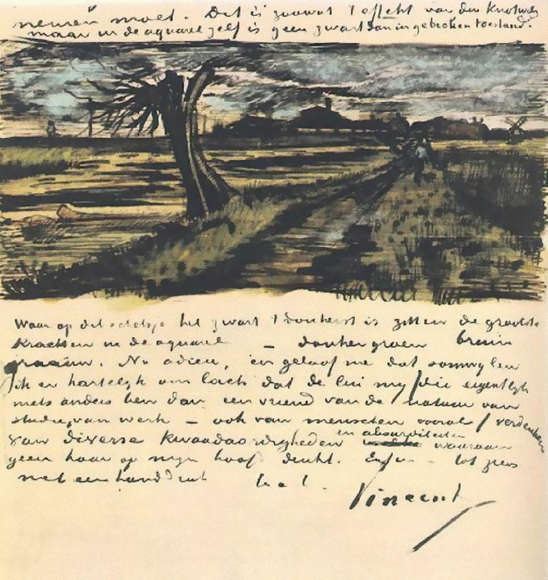 nemen moet. Dit is zoowat 't effekt van den Knotwilg
maar in de aquarel zelf is geen zwart dan in gebroken toestand.
Waar op dit schetsje het zwart 't donkerst is zitten de grootste
krachten in de aquarel – donkergroen bruin
graauw. Nu adieu, en geloof me dat somwylen
ik er hartelyk om lach dat de lui my (die eigentlyk
niets anders ben dan een vriend van de natuur van
studie van werk – ook van menschen vooral) verdenken
van diverse kwaadaardigheden en absurditeiten waaraan
geen haar op myn hoofd denkt. Enfin – tot ziens
met een handdruk
Vincent